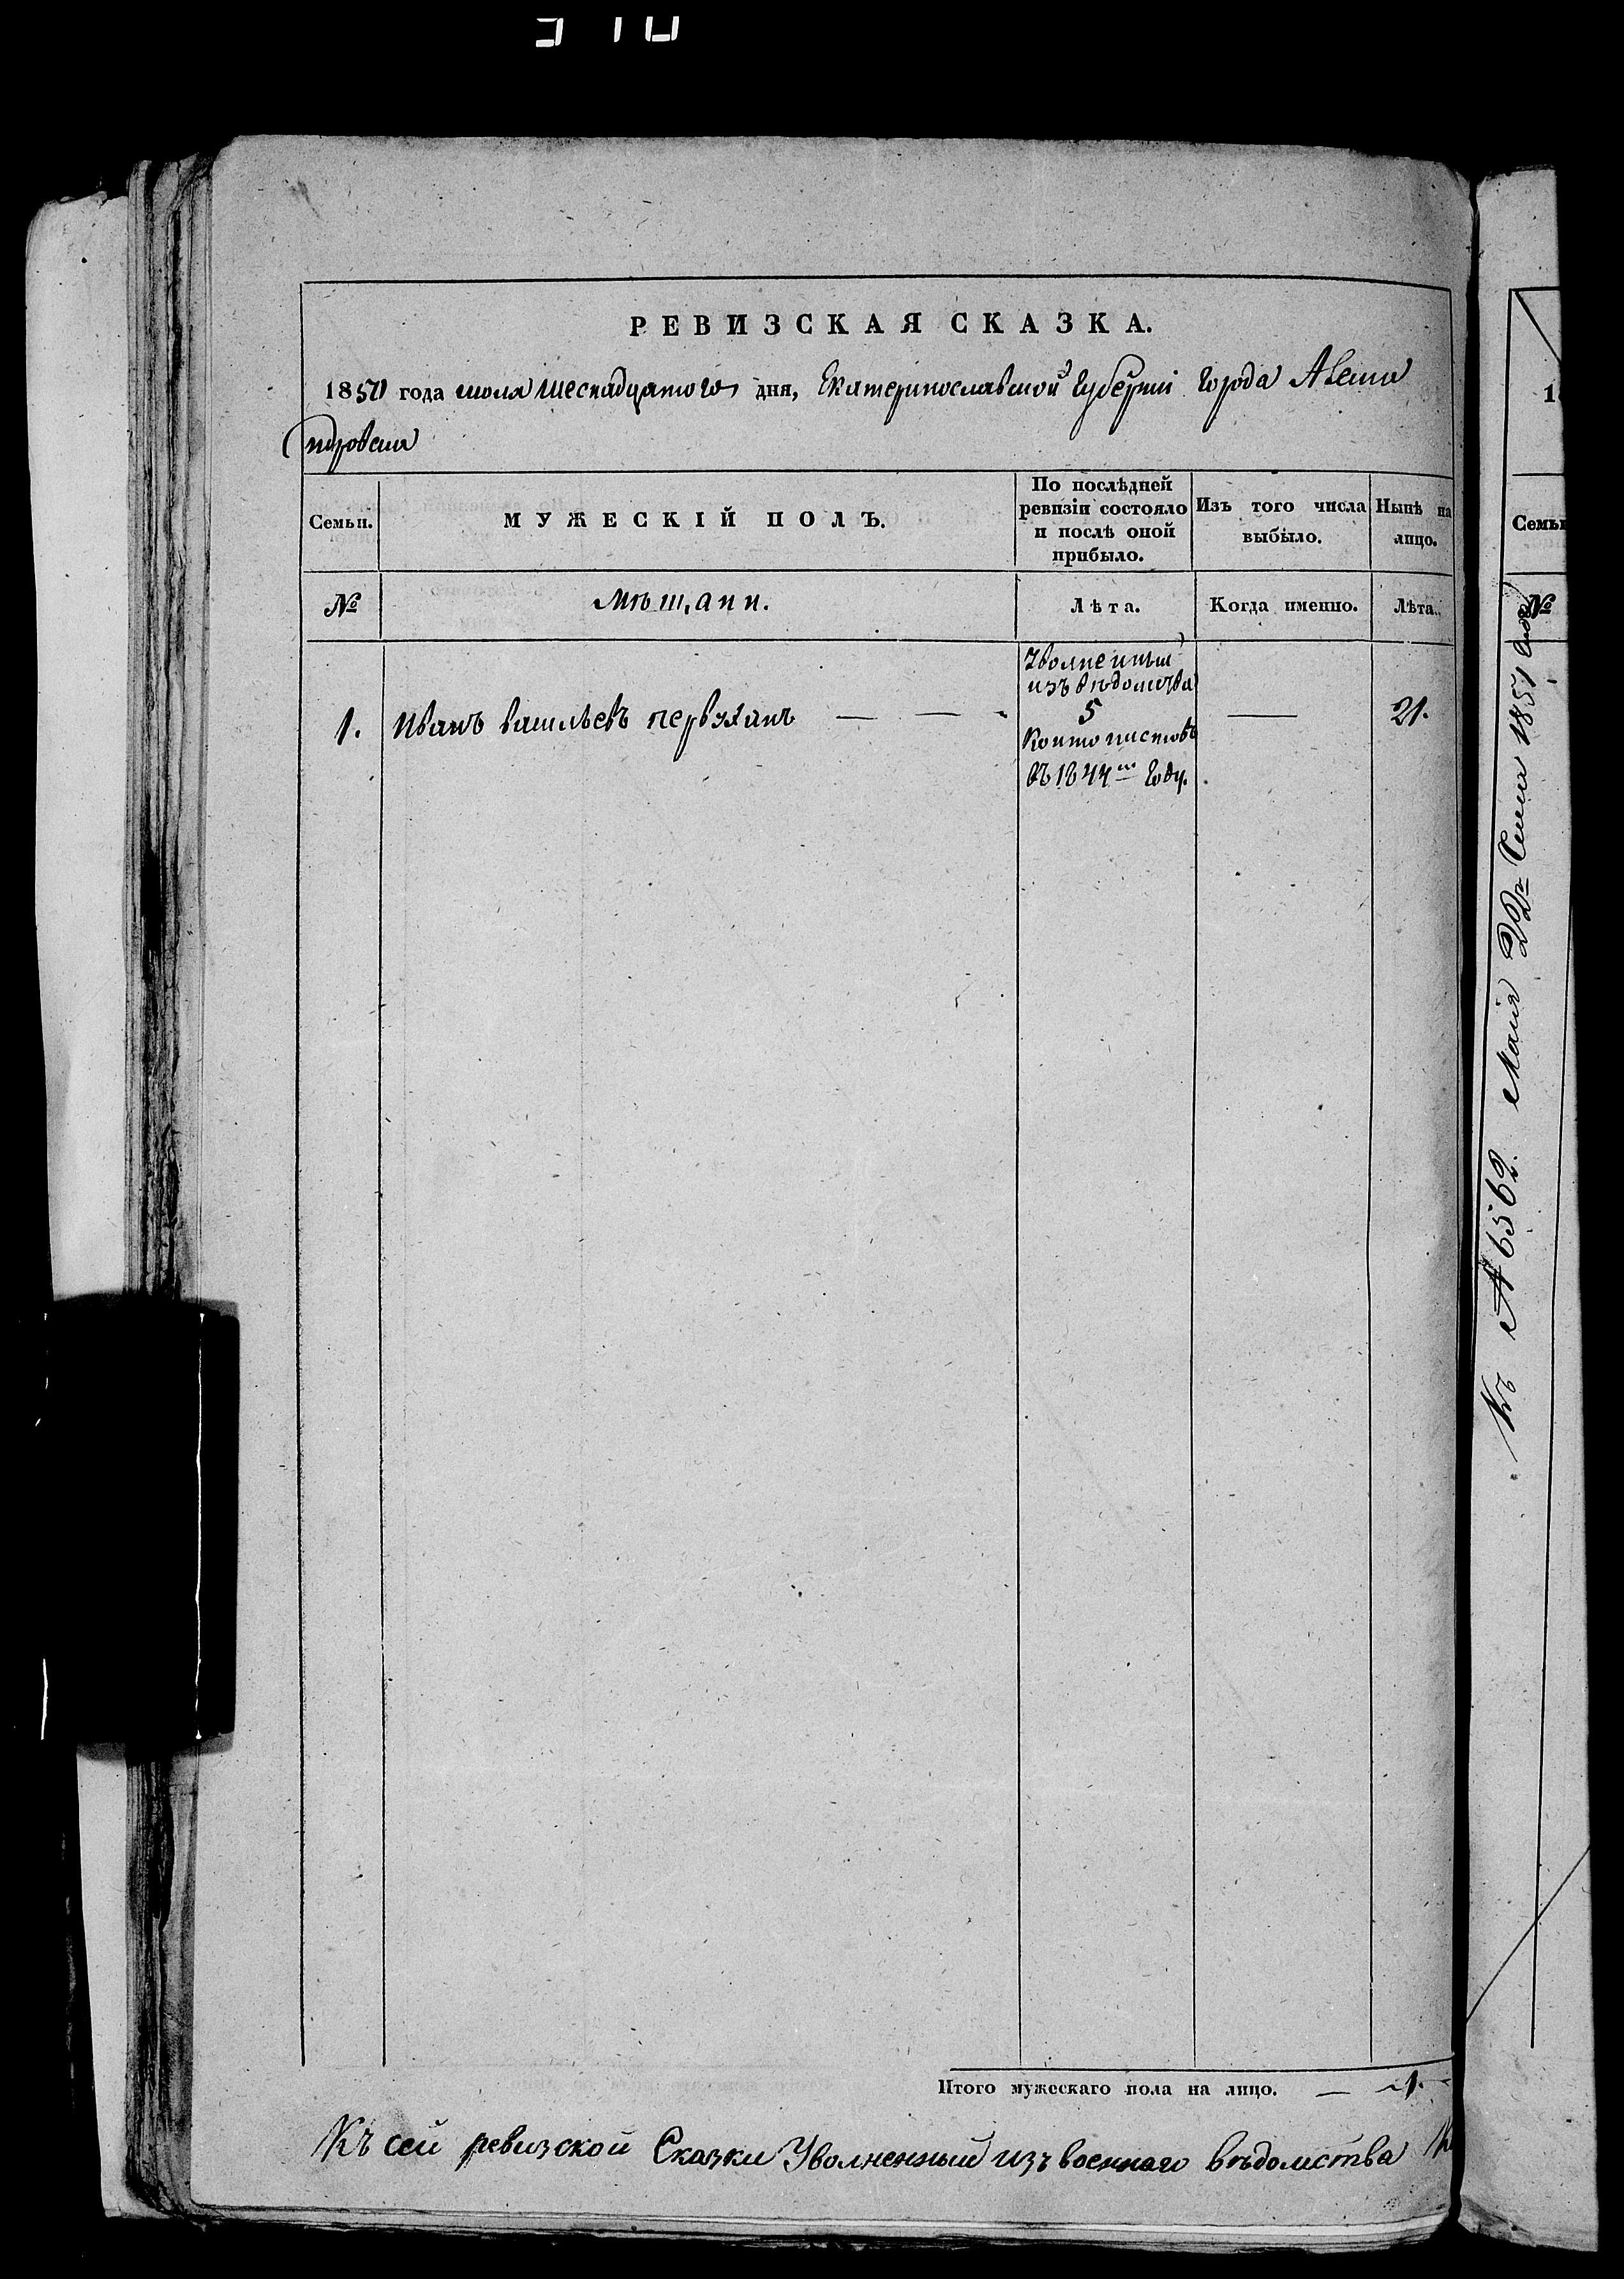 РЕВИЗСКАЯ СКАЗКА.
1850 года июля шеснадцатого дня, Екатеринославской губерніи города
Семьи.
МУЖЕСКІЙ ПОЛЪ.
По послѣдней ревизіи состояло и послѣ оной прибыло.
Изъ того числа выбыло.
Нынѣ на лицо.
№
Мѣщани.
Лѣта.
Когда именно.
Лѣта.
1.
Иванъ Васильевъ
Уволненный
изъ вѣдомства
5
Контонистовъ
въ 1844мъ году.
21.
Итого мужескаго пола на лицо. — 1.
Къ сей ревизской Сказки Уволненный изъ военнаго вѣдомства
Семьи
№
Къ № 6562. Маія 1851